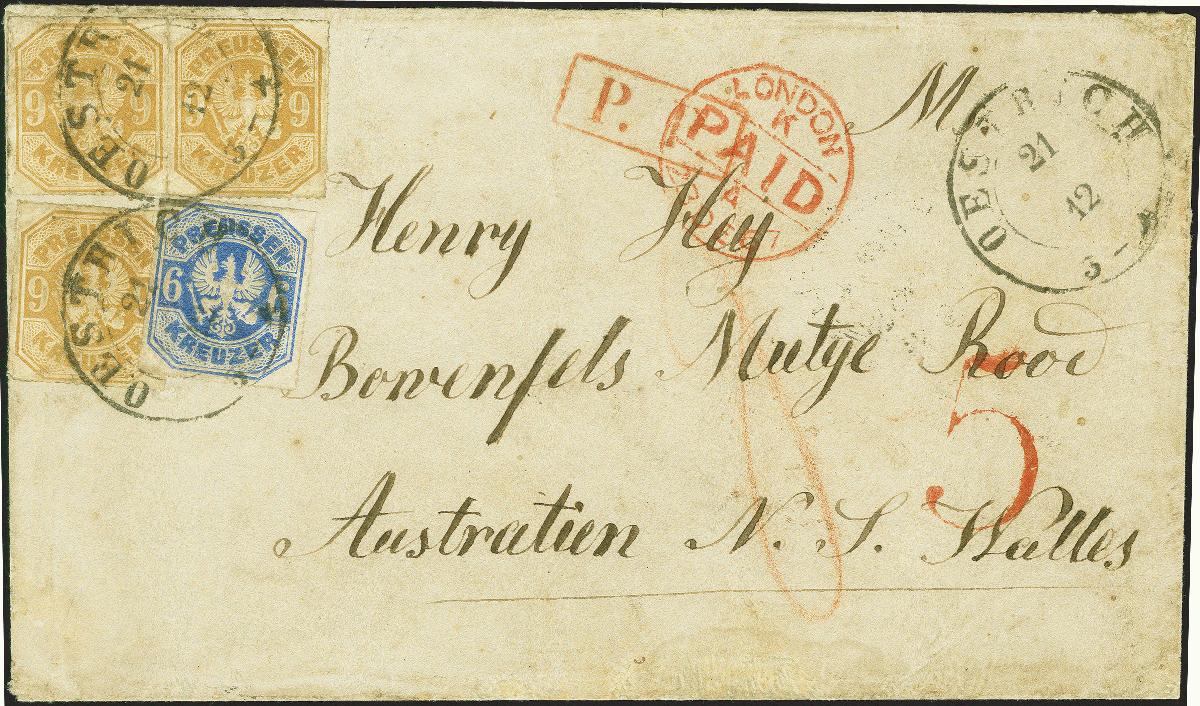 PREUSSEN
9 9
KREUZER
PREUSSEN
9 9
KREUZER
OESTRICH
21
12
5-4
P.
LONDON
K
PAID
67
M.
OESTRICH
21
12
5-4
Henry Hey
PREUSSEN
9
KREUZER
PREUSSEN
6 6
KREUZER
OESTRICH
21
Bowenfels Mutge Rood
5
Australien N. S. Walles